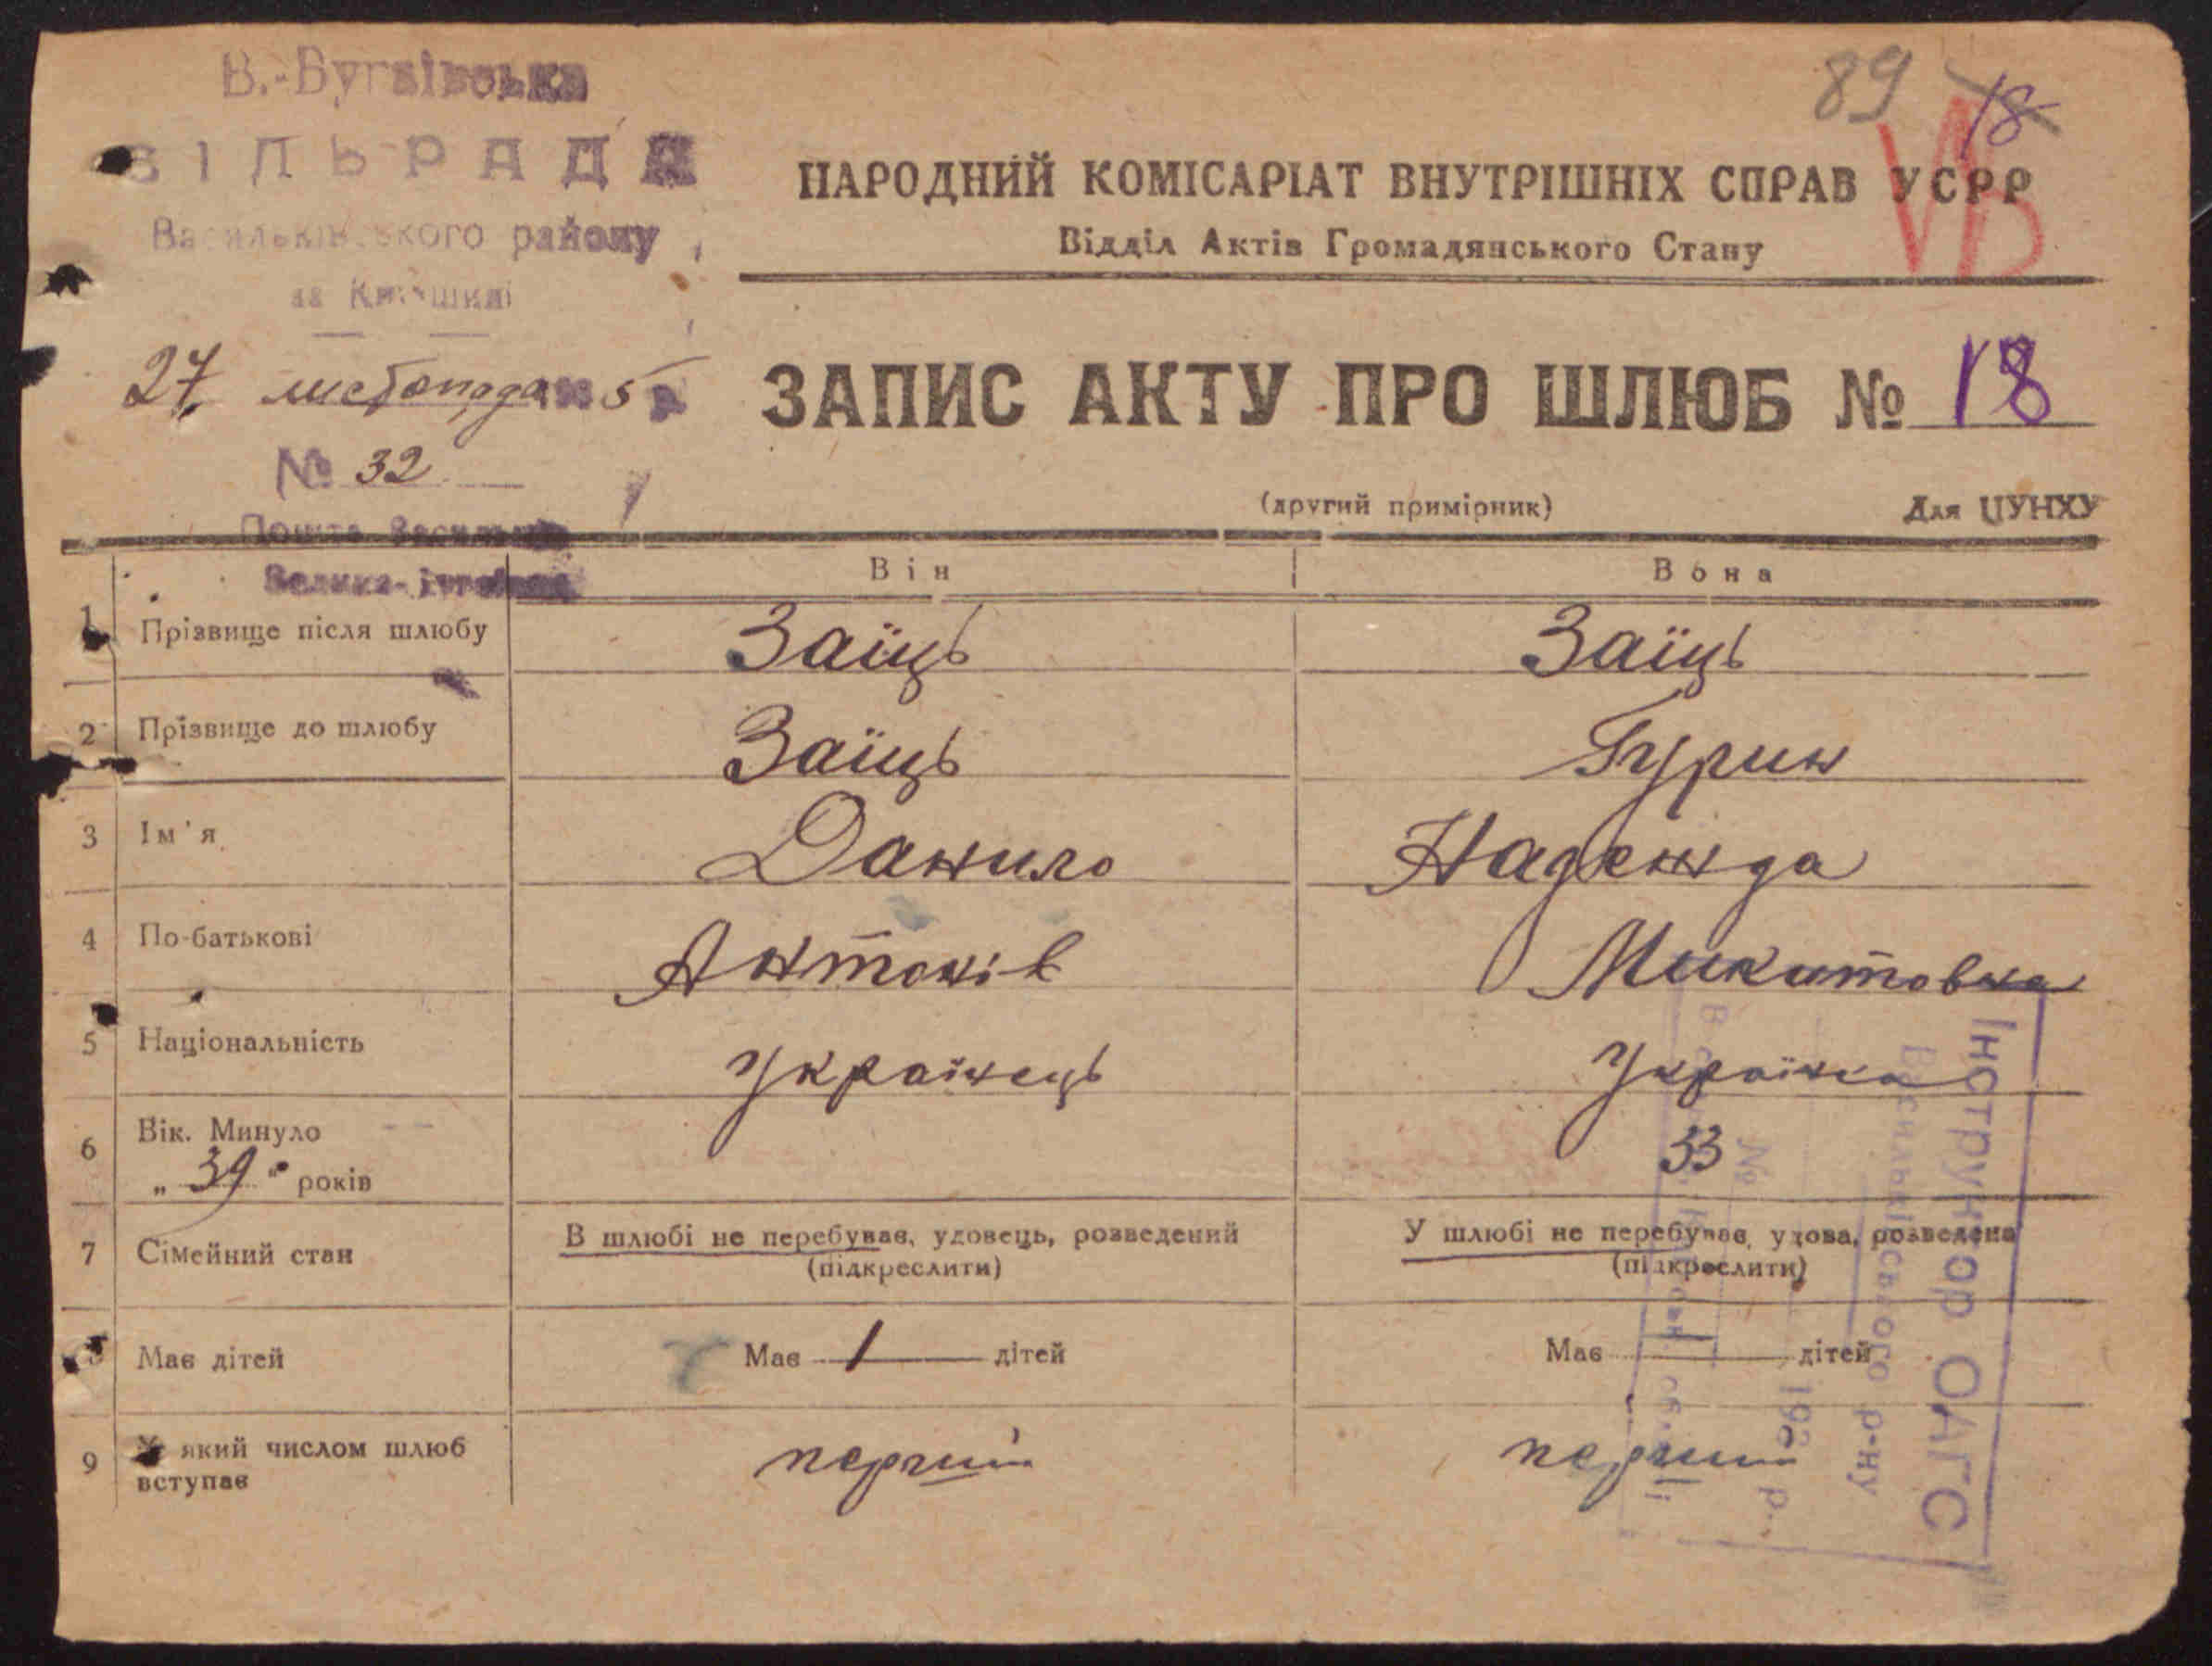 В.-Бугаївська
СІЛЬРАДА
Васильківського району
на Київщині
27 листопада 5 р
№ 32
Пошта Васильків
Велика-Бугаївка
89 18
VB
НАРОДНИЙ КОМІСАРІАТ ВНУТРІШНІХ СПРАВ УСРР
Відділ Актів Громадянського Стану
ЗАПИС АКТУ ПРО ШЛЮБ № 18
(другий примірник) Для ЦУНХУ
Він Вона
1 Прізвище після шлюбу Заїць Заїць
2 Прізвище до шлюбу Заїць Гурин
3 Ім'я Данило Надежда
4 По-батькові Антонів Микитовна
5 Національність Українець Українка
6 Вік. Минуло
„ 39 " років 33
7 Сімейний стан В шлюбі не перебував, удовець, розведений У шлюбі не перебував, удова, розведена
(підкреслити) (підкреслити)
8 Має дітей Має 1 дітей Має 1 дітей
9 У який числом шлюб перший перший
вступає
Інструктор ОАГС
Васильківського р-ну
№ 193 р.